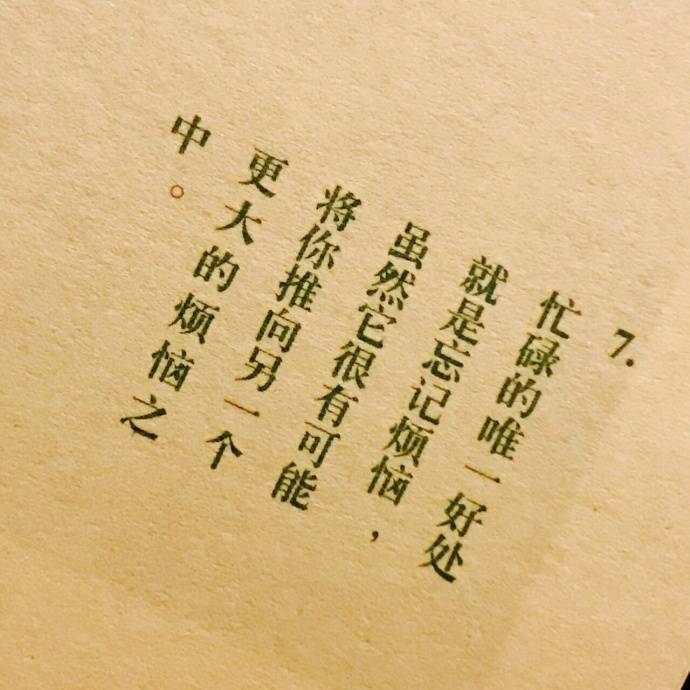 7.
忙碌的唯一好处
就是忘记烦恼，
虽然它很有可能
将你推向另一个
更大的烦恼之
中。